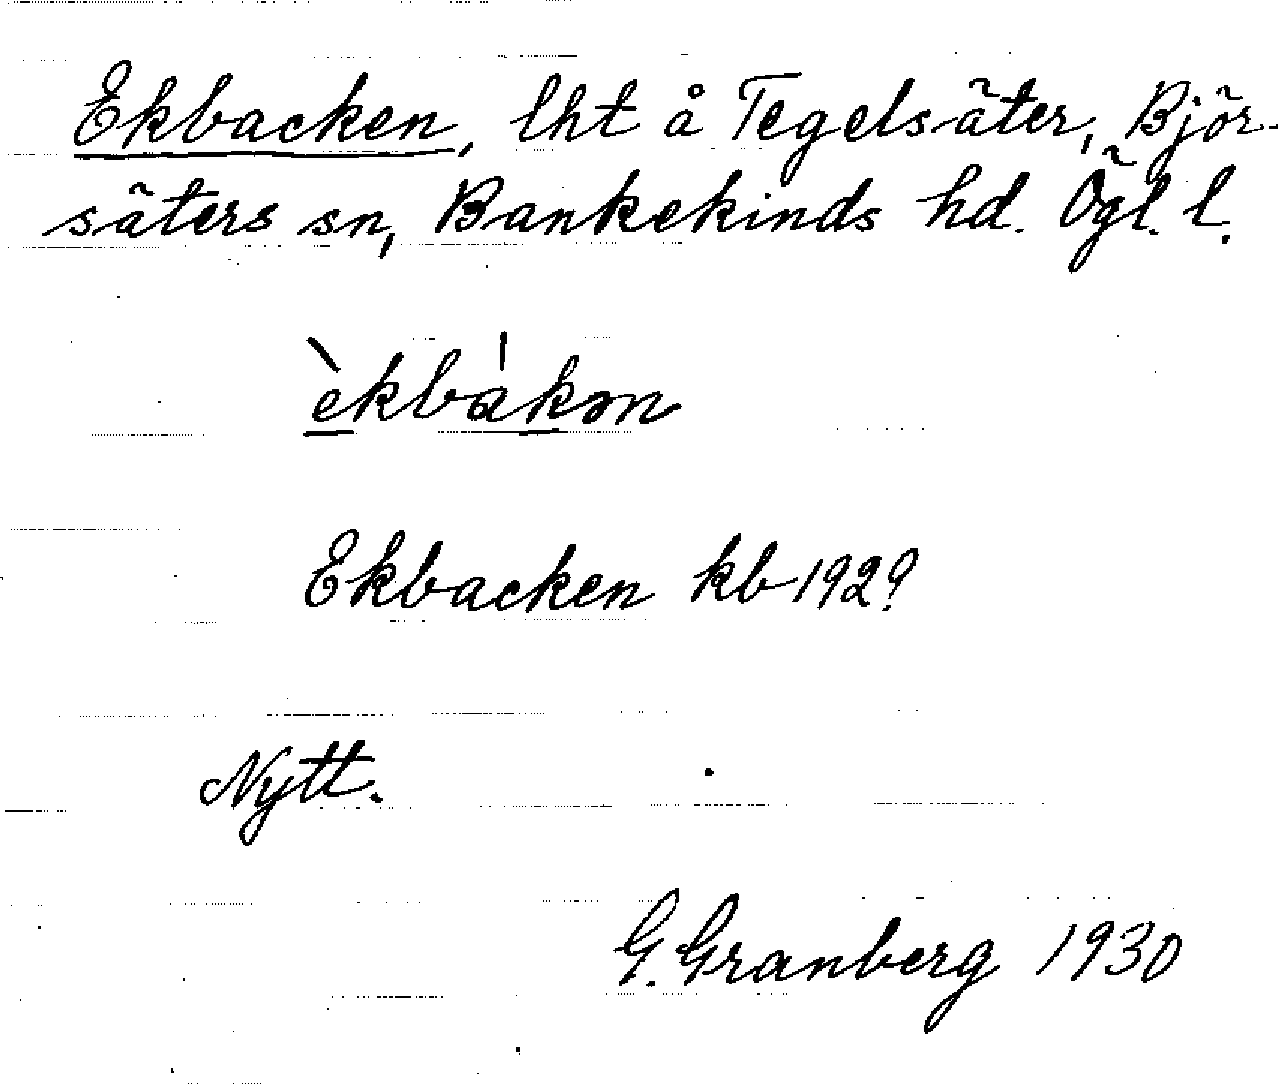 Ekbacken, lht å Tegelsäter, Björ-
säters sn, Bankekinds hd. Ögl. l.
èkbákən
Ekbacken kb 1929
Nytt.
G. Granberg 1930